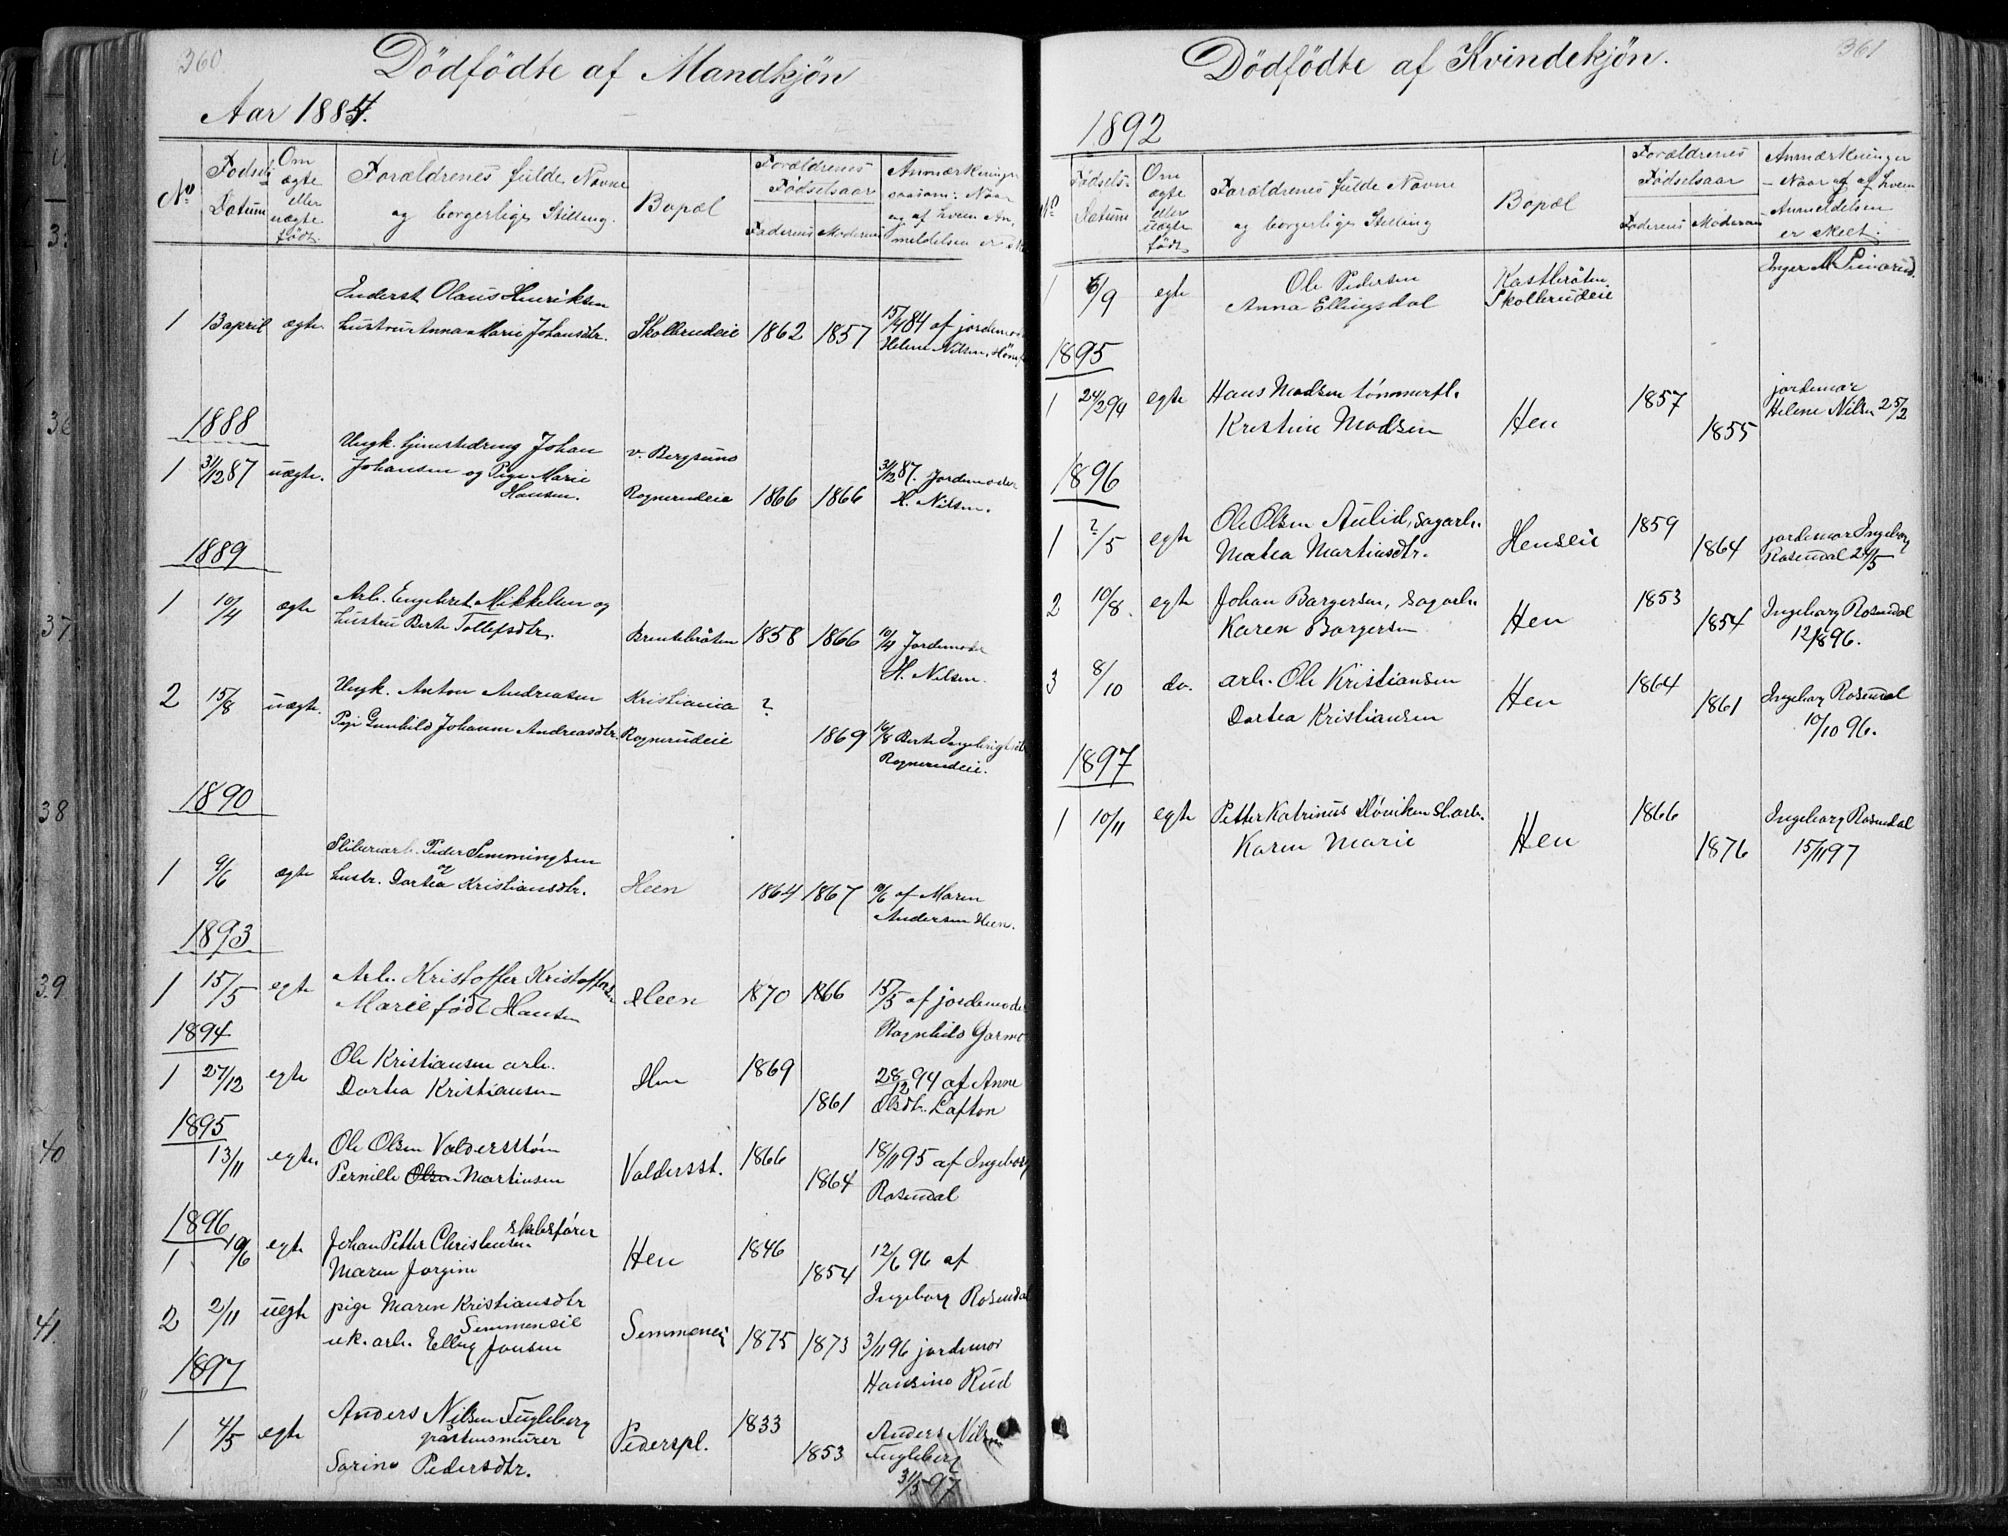 360
Dödfödte af Mandkjön
Aar 1884.
No
Födsels Datum
Om ægte eller uægte födt.
Forældrenes fulde Navne og borgerlige Stilling.
Bopæl
Forældrenes Födselsaar
Faderens Moderens
Anmærkninger saasom: Naar og af hvem An-
meldelsen er
Inderst Olaus Henriksen
1 13 april ægte Hustru Anna Marie Johansdtr. Skolbrudeie 1862 1857 15/4 84 af jordemo
Helene Nilsen, Höne
1888
Ungk. tjenestedreng Johan v. Bergsund
1 31/12 87 uægte. Johansen og Pige Marie
Hansen. Rognerudeie 1866 1866 31/12 87. Jordemoder
H. Nilsen.
1889
1 10/4 ægte Arb. Engebret Mikkelsen og
Hustru Berte Tollefsdtr. Brentebröten 1858 1866 10/4 Jordemoder
H. Nilsen.
2 15/8 uægte. Ungk. Anton Andreasen Kristiania ?
Pige Gunhild Johanne Andreasdtr. Rognerudeie 1869 16/8 Berte
Rognerudeie.
1890
Sliberiarb. Peder Semmingsen
1 9/6 ægte og
Hustr. Dortea Kristiansdtr. Heen 1864 1867 10/6 af Maren
Andersen Heen.
1893
1 15/5 egte Arb. Kristoffer Kristoffersen
Marie født Hansen Heen 1870 1866 15/5 af jordemoder
Ragnhild Garmo
1894
1 27/12 egte Ole Kristiansen arb.
Dortea Kristiansen Hen 1869 1861 28/12 94 af Anne
Olsdtr. Lafton
1895
13/11 egte. Ole Olsen Valdersstøen
Pernille Olsen Martinsen Valdersst. 1866 1864 18/11 95 af Ingeborg
Rosendal
1896
1 10/6 egte Johan Petter Christensen
Maren Jorgine Hen 1846 1854 12/6 96 af
Ingeborg Rosendal
2 2/11 uegte pige Maren Kristiansdtr
Semmeneie
u.k. arb. Elling Jonsen Semmenei 1875 1873 3/11 96 jordemor
Hansine Rud
1897
1 4/5 egte Anders Nilsen Fugleberg
Sarine Pedersdtr. Pederspl. 1833 1853 Anders Nilsen
Fugleberg
31/5 97
361
Dödfödte af Kvindekjön.
1892
No
Födsels- Datum
Om ægte eller uægte födt
Forældrenes fulde Navne og borgerlige Stilling
Bopæl
Forældrenes Födselsaar
Faderens Moderens
Anmærkninger
- Naar og af hvem
Anmeldelsen
er skeet.
1 6/9 egte Ole Pedersen
Anna Ellingsdal Kastbråten
Skolbrudeie Inger M.
1895
1 24/2 94 egte Hans Madsen tømmerfl.
Kristine Madsen Hen 1857 1855 jordemor
Helene Nilsen 25/2
1896
1 ?/5 egte Ole Olsen Aulid, sagarb.
Matea Martinsdtr. Henseie 1859 1864 jordemor Ingeborg
Rosendal 24/5
2 10/8. egte Johan Borgersen, sagarb.
Karen Borgersen Hen 1853 1854 Ingeborg Rosendal
12/8 96.
3 8/10 do. arb. Ole Kristiansen
Dortea Kristiansen Hen 1864 1861 Ingeborg Rosendal
10/10 96.
1897
1 10/11 egte Petter Katrinus Høviken sl.arb.
Karen Marie Hen 1866 1876 Ingeborg Rosendal
15/11 97